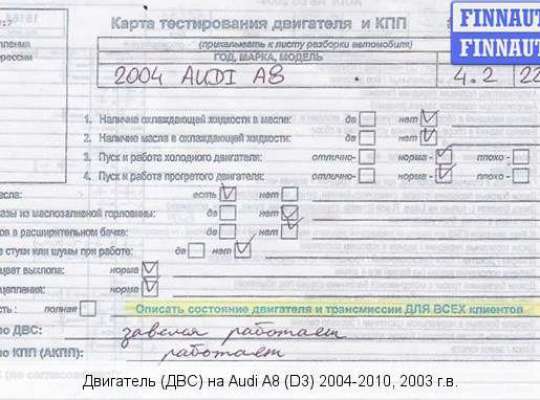 Карта тестирования двигателя и КПП
FINNAUT
FINNAUT
(прикалывать к листу разборки автомобиля)
ГОД, МАРКА, МОДЕЛЬ
2004 AUDI A8 4.2 22
1. Наличие охлаждающей жидкости в масле: да нет
2. Наличие масла в охлаждающей жидкости: да нет
3. Пуск и работа холодного двигателя: отлично- норма - плохо -
4. Пуск и работа прогретого двигателя: отлично- норма - плохо -
есть нет
азы из маслозаливной горловины: да нет
ов в расширительном бачке: да нет
е стуки или шумы при работе: да нет
цвет выхлопа: норма
цепления: норма
сть : полная Описать состояние двигателя и трансмиссии ДЛЯ ВСЕХ клиентов
во ДВС: завелся работает
во КПП (АКПП): работает
Двигатель (ДВС) на Audi A8 (D3) 2004-2010, 2003 г.в.